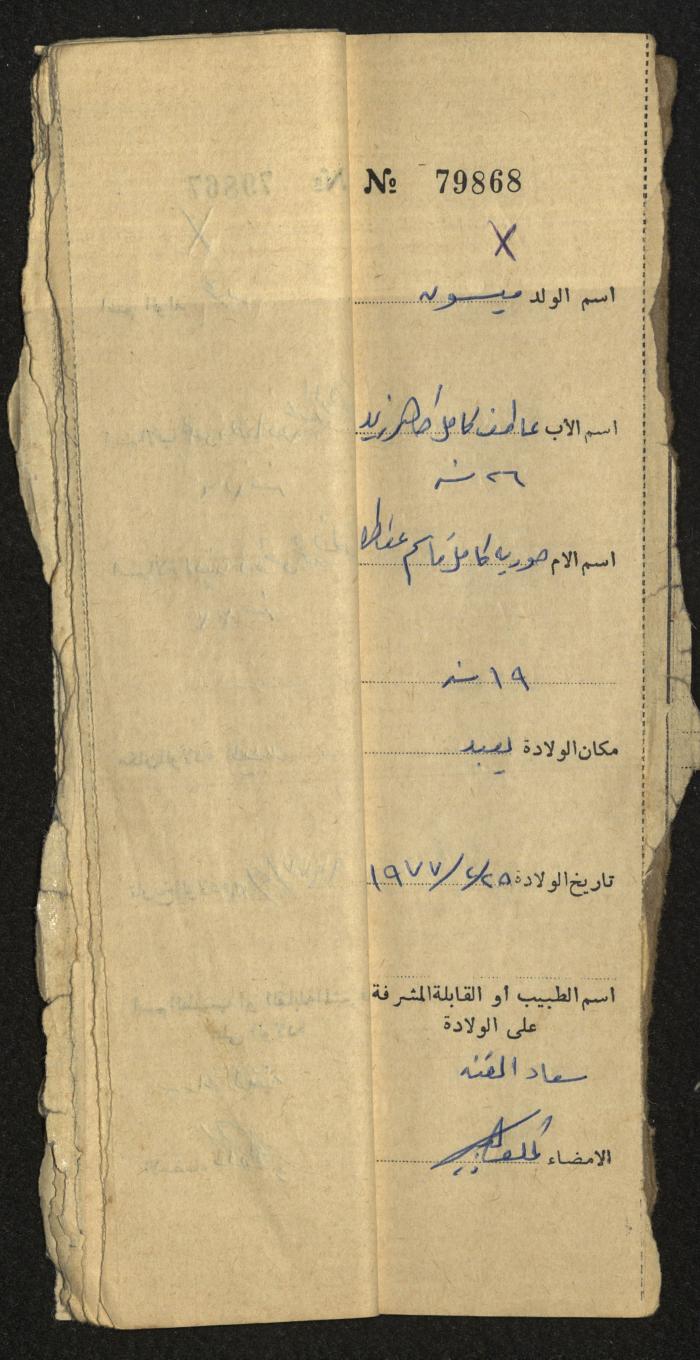 № 79868
X
اسم الولد ميسون
اسم الأب عاطف كامل طاهر زيد
٢٦ سنه
اسم الام حوريه كامل قاسم
١٩ سنه
مكان الولادة يعبد
تاريخ الولادة ١٩٧٧/٤/٢٨
اسم الطبيب أو القابلة المشرفة
على الولادة
سعاد
الامضاء